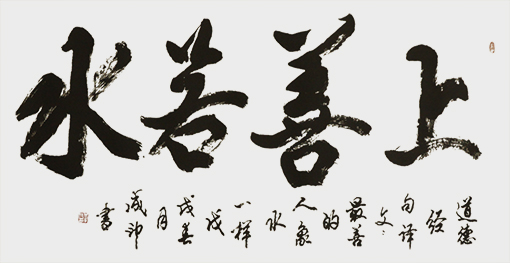 上善若水
道德
经
句译
文：
最善
的
人象
水
一样
月
书